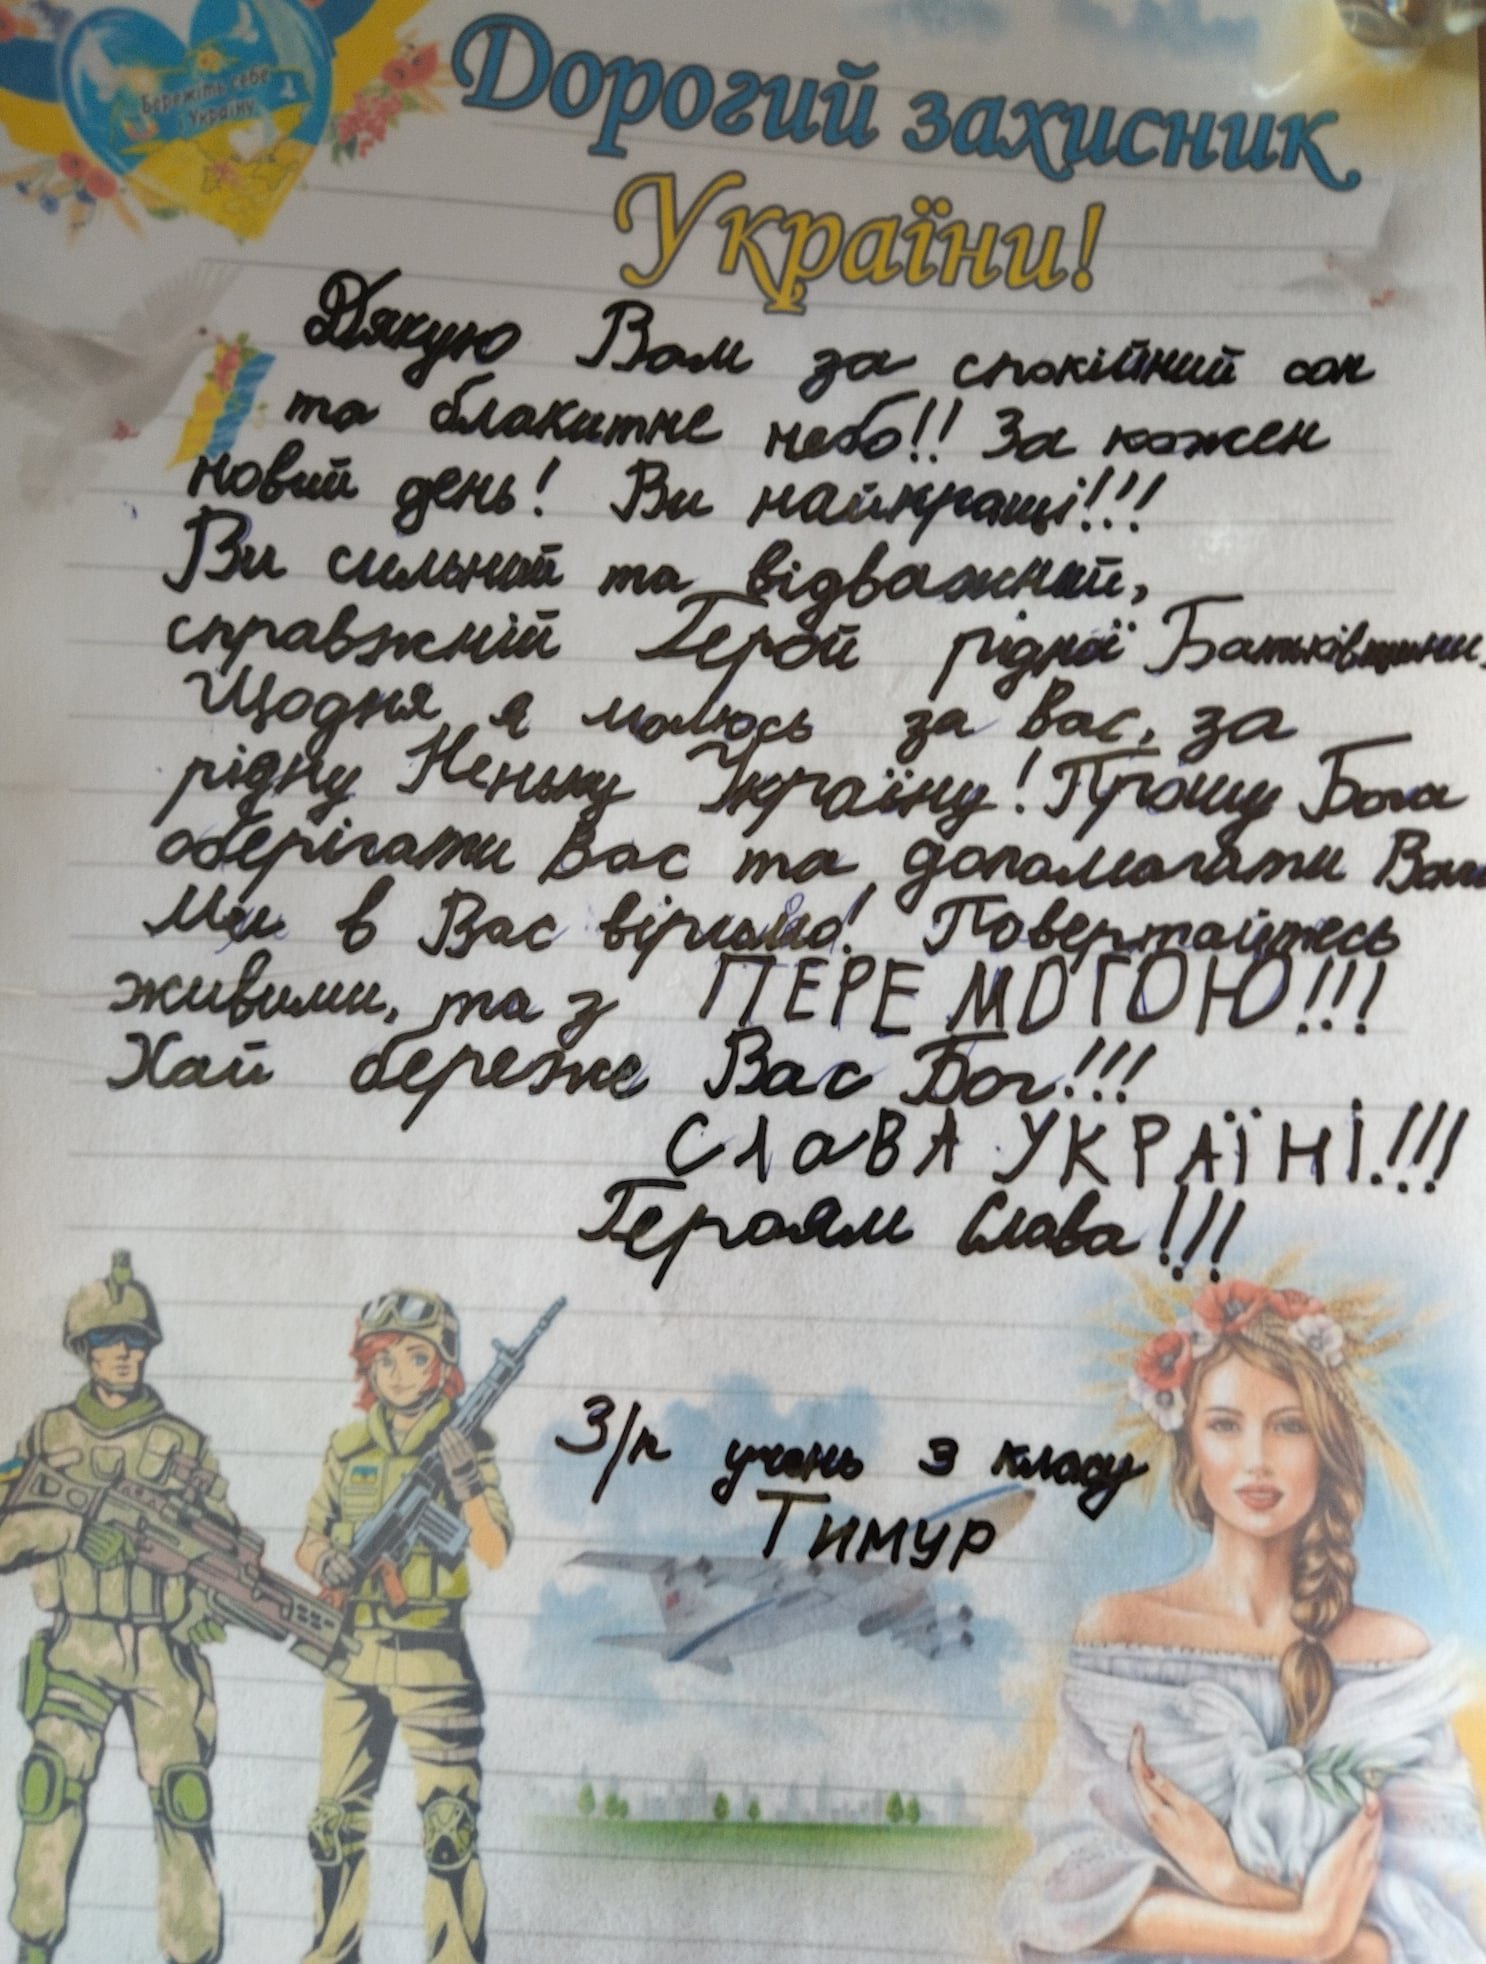 Бережіть себе
і Україну
Дорогий захисник
України!
Дякую Вам за спокійний сон
та блакитне небо!! За кожен
новий день! Ви найкращі!!!
Ви сильний та відважний,
справжній Герой рідної Батьківщини.
Щодня я молюсь за Вас, за
рідну Неньку Україну! Прошу Бога
оберігати Вас та допомагати Вам
Ми в Вас віримо! Повертайтесь
живими, та з ПЕРЕМОГОЮ!!!
Хай береже Вас Бог!!!
СЛАВА УКРАЇНІ!!!
Героям Слава!!!
З/п учень 3 класу
Тимур